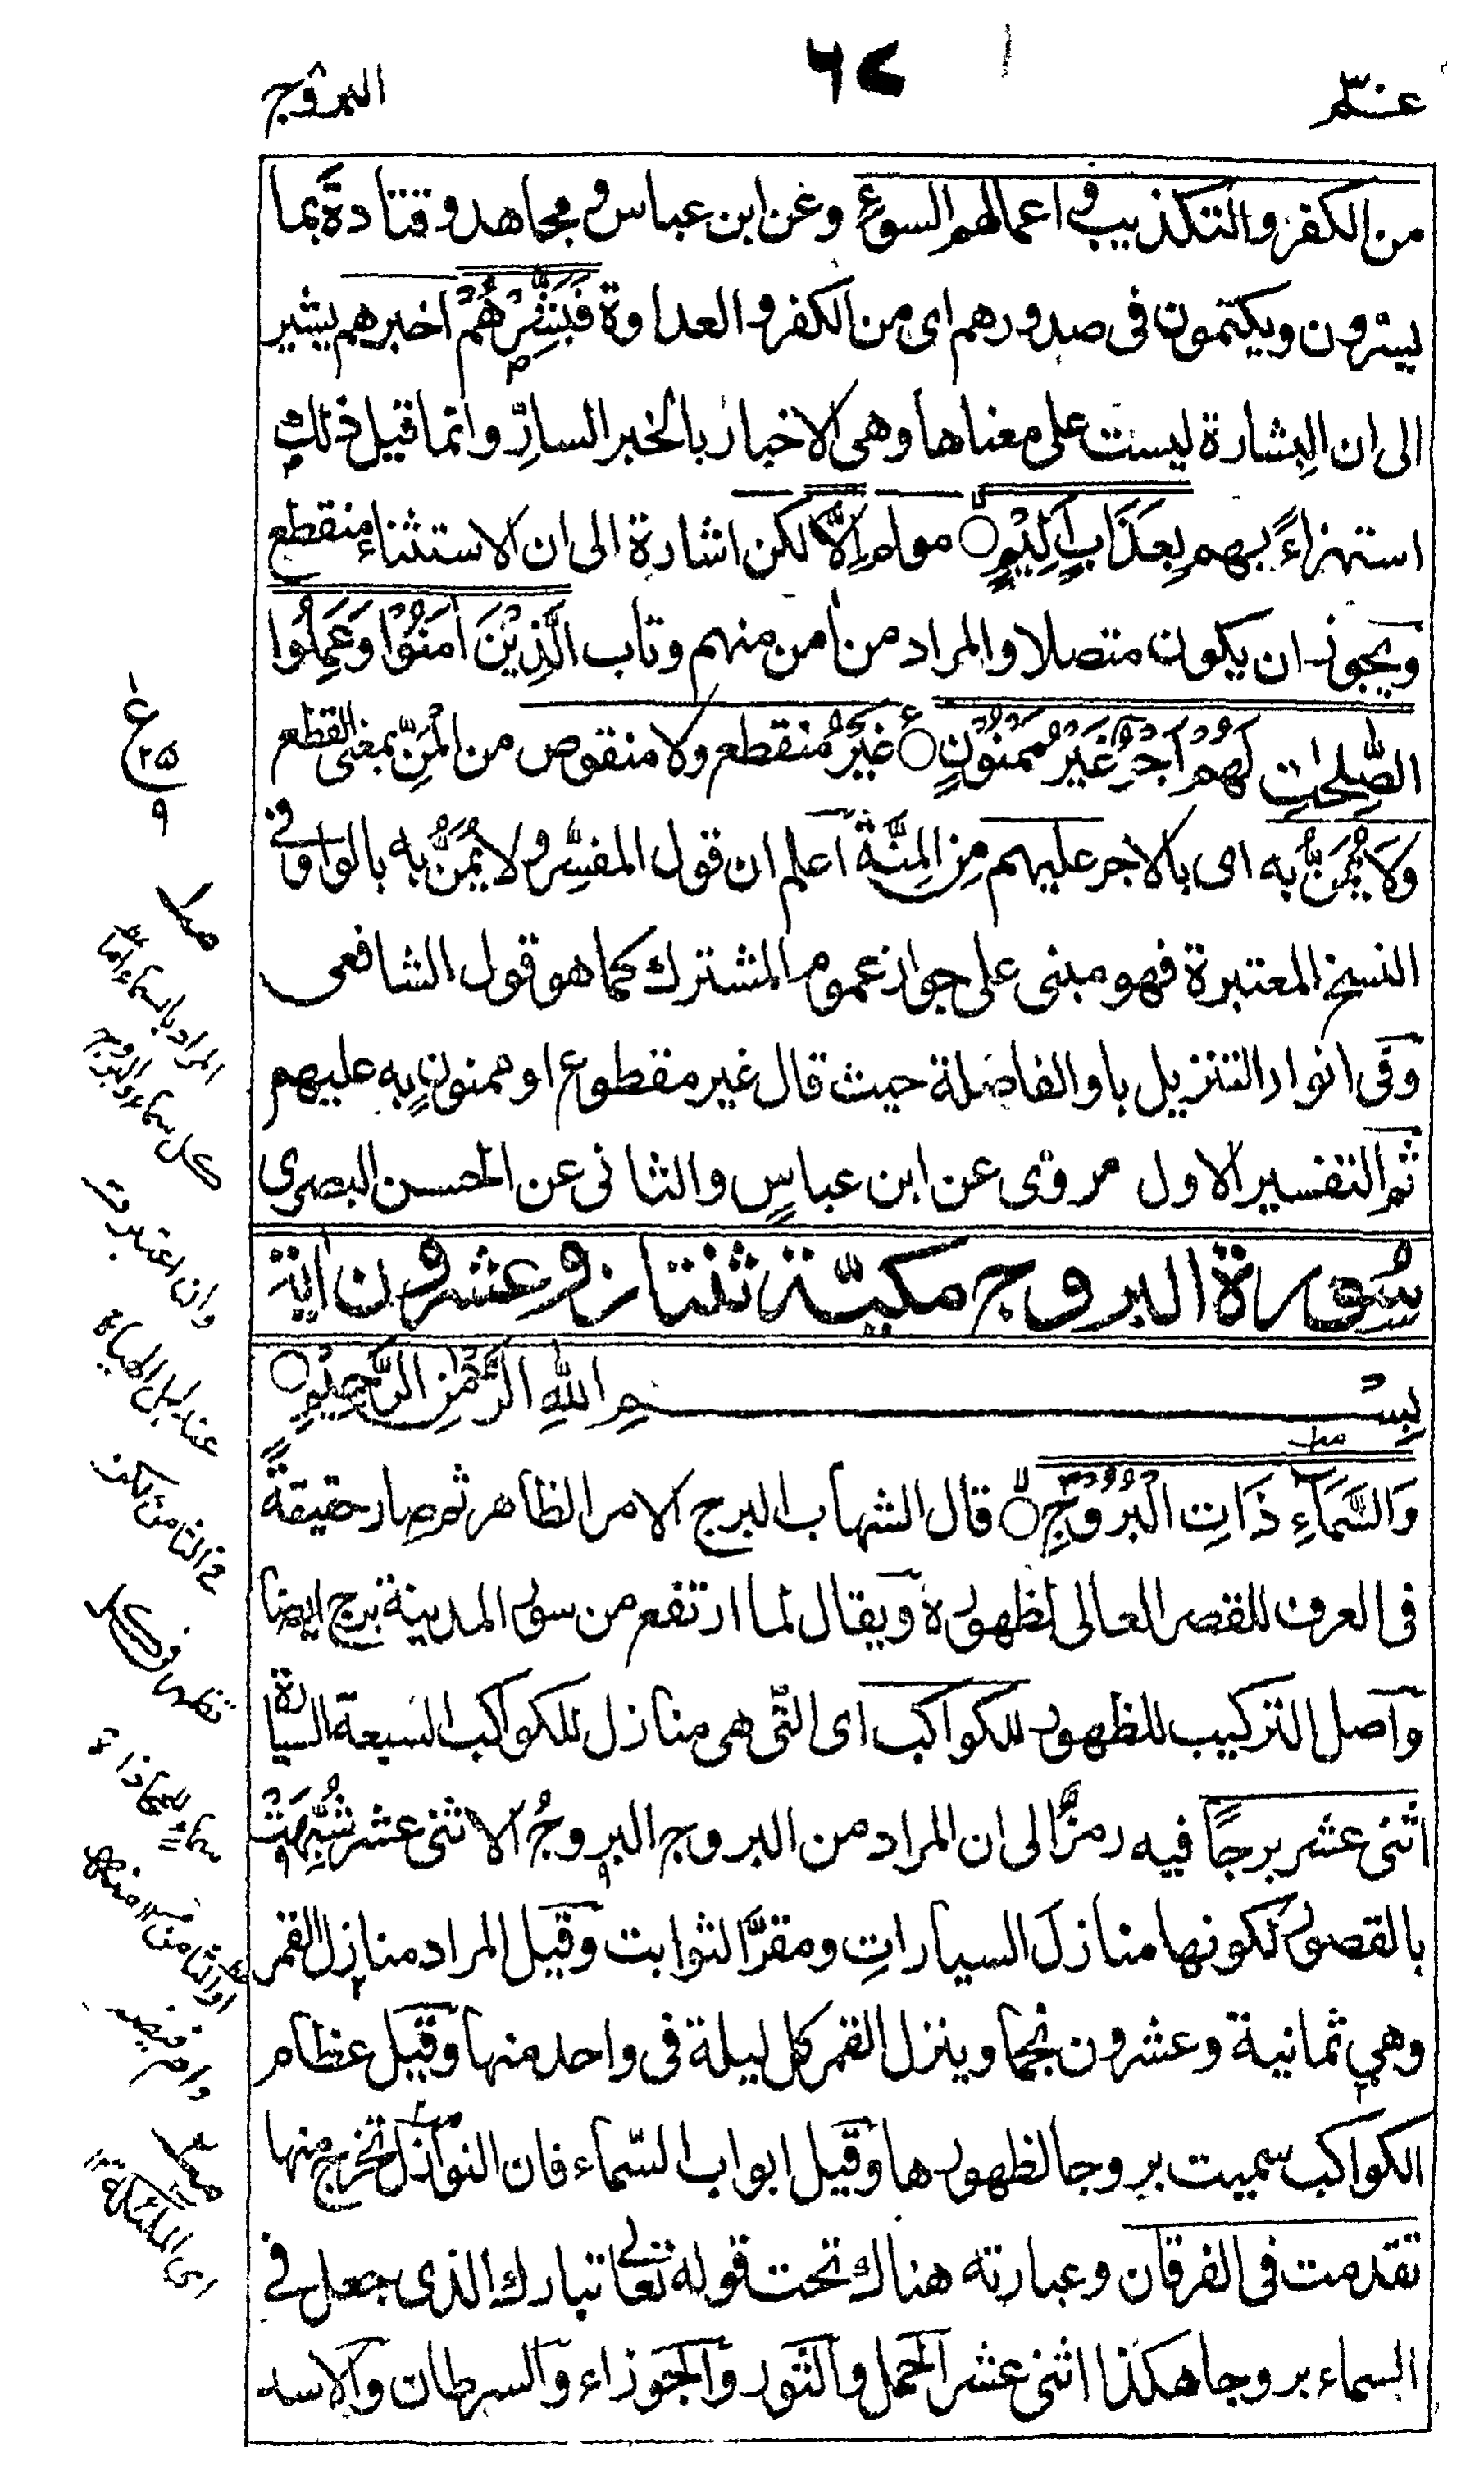 عمّ
٦٧
البروج
من الكفر والتكذيب في اعمالهم السوء وعن ابن عباس و مجاهد و قتادة بما
يسرون ويكتمون في صدورهم اى من الكفر و العداوة فَبَشِّرْهُمْ اخبرهم يشير
الى ان البشارة ليست على معناها وهى الاخبار بالخبر السارّ وانما قيل ذلك
استهزاءً بهم بِعَذَابٍ اَلِيْمٍ مولم اِلَّا لكن اشارة الى ان الاستثناء منقطع
ويجوز ان يكون متصلا والمراد من اٰمن منهم وتاب الَّذِيْنَ اٰمَنُوْا وَعَمِلُوا
الصّٰلِحٰتِ لَهُمْ اَجْرٌ غَيْرُ مَمْنُوْنٍ غَيْرُ منقطع ولا منقوص من المَنّ بمعنى القطع
وَلَا يُمَنُّ به اى بالاجر عليهم مِنَ المِنَّة اعلم ان قول المفسّر ولا يُمَنُّ به بالواو فى
النسخ المعتبرة فهو مبنى على جواز عموم المشترك كما هو قول الشافعى
وفى انوار التنزيل باو الفاضلة حيث قال غير مقطوع او ممنونٍ به عليهم
ثم التفسير الاول مروى عن ابن عباسٍ والثانى عن الحسن البصرى
سُورة البروج مكيّة ثنتان وعشرون اٰية
بِسْمِ اللّٰهِ الرَّحْمٰنِ الرَّحِيْمِ
وَالسَّمَآءِ ذَاتِ الْبُرُوْجِ قال الشهاب البرج الامر الظاهر ثم صار حقيقةً
فى العرف للقصر العالى لظهوره ويقال لما ارتفع من سور المدينة برج ايضا
واصل التركيب للظهور للكواكب اى التى هى منازل للكواكب السبعة السيارة
اثنى عشر برجًا فيه رمزٌ الى ان المراد من البروج البروجُ الاثنى عشر شُبِّهَتْ
بالقصور لكونها منازلَ السياراتِ ومقرَّ الثوابت وقيل المراد منازل القمر
وهى ثمانية وعشرون نجما وينزل القمر كل ليلة فى واحد منها وقيل عظام
الكواكب سميت بروجا لظهورها وقيل ابواب السّماء فان النوازل تخرج منها
تقدمت فى الفرقان وعبارته هناك تحت قوله تعالى تبارك الذى جعل فى
السماء بروجا هكذا اثنى عشر الحمل والثور والجوزاء والسرطان والاسد
ع
٢٥
٩
المراد بالسماء اما
كل سماء والبروج
وان اعتبرت
عند اهل الهيأة
فى الثامن لكن
او الثامن منها
اى الملئكة